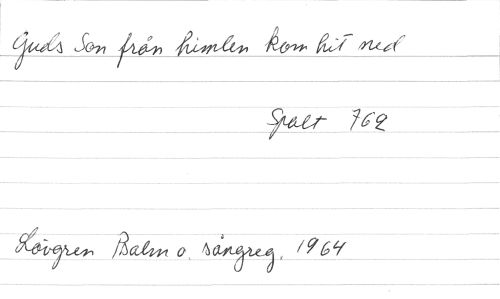 Guds Son från himlen kom hit ned
Spalt 762
Lövgren Psalm o. sångreg. 1964